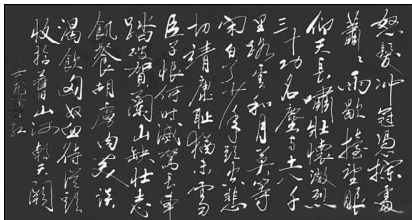 怒髮冲冠憑欄處
蕭々雨歇擡望眼
仰天長嘯壯懷激烈
三十功名塵與土八千
里路雲和月莫等
閑白了少年頭空悲
切靖康耻猶未雪
臣子恨何時滅駕長車
踏破賀蘭山缺壮志
飢餐胡虜肉笑談
渴飲匈奴血待從頭
收拾舊山河朝天闕